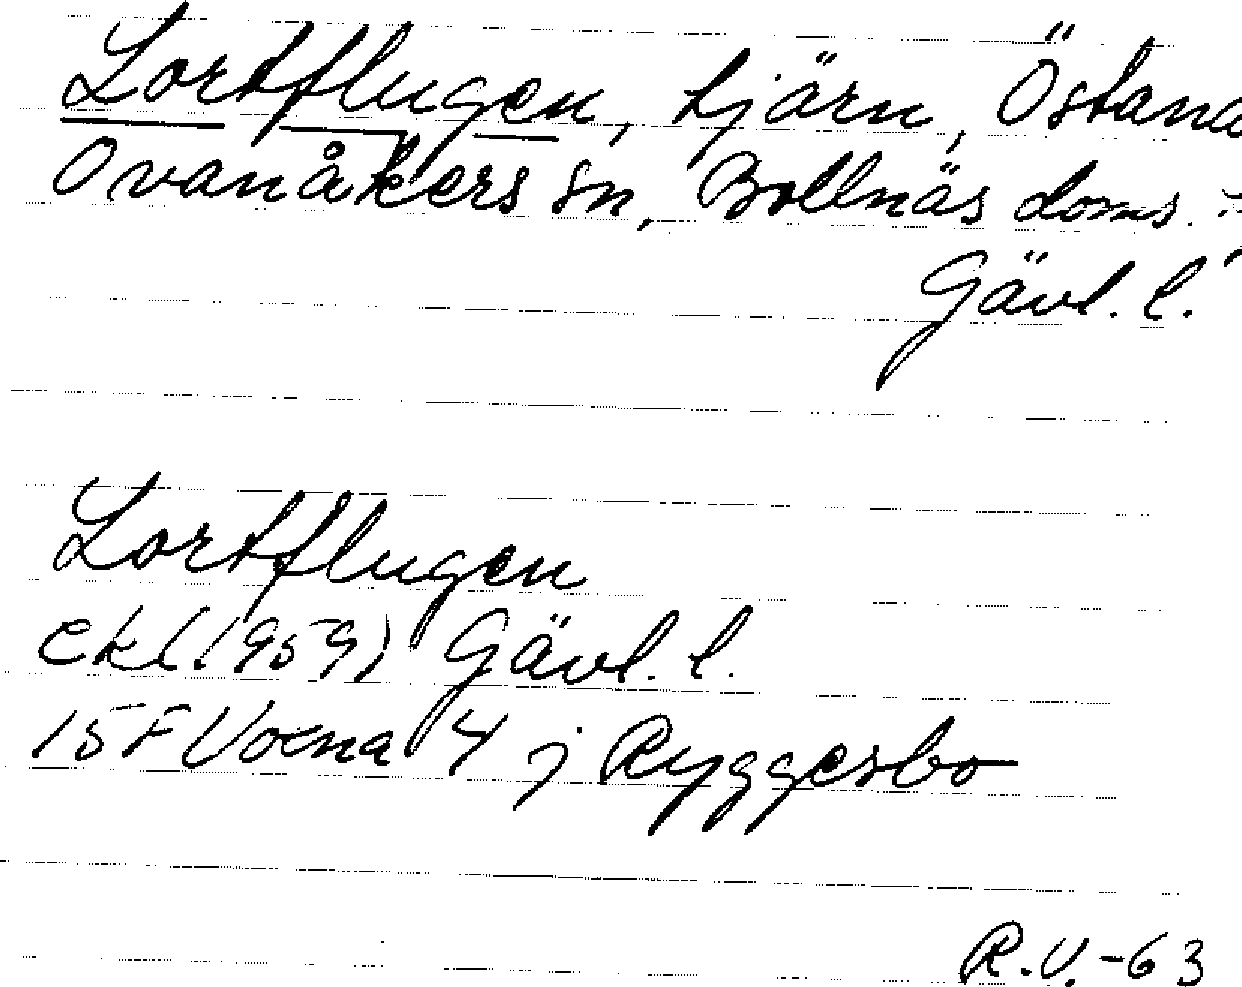 Lortflugen, tjärn, Östana
Ovanåkers sn, Bollnäs doms.
Gävl. l.
Lortflugen
ekl (1959) Gävl. l.
15F Voxna 4 j Ryggesbo
R.V.-63